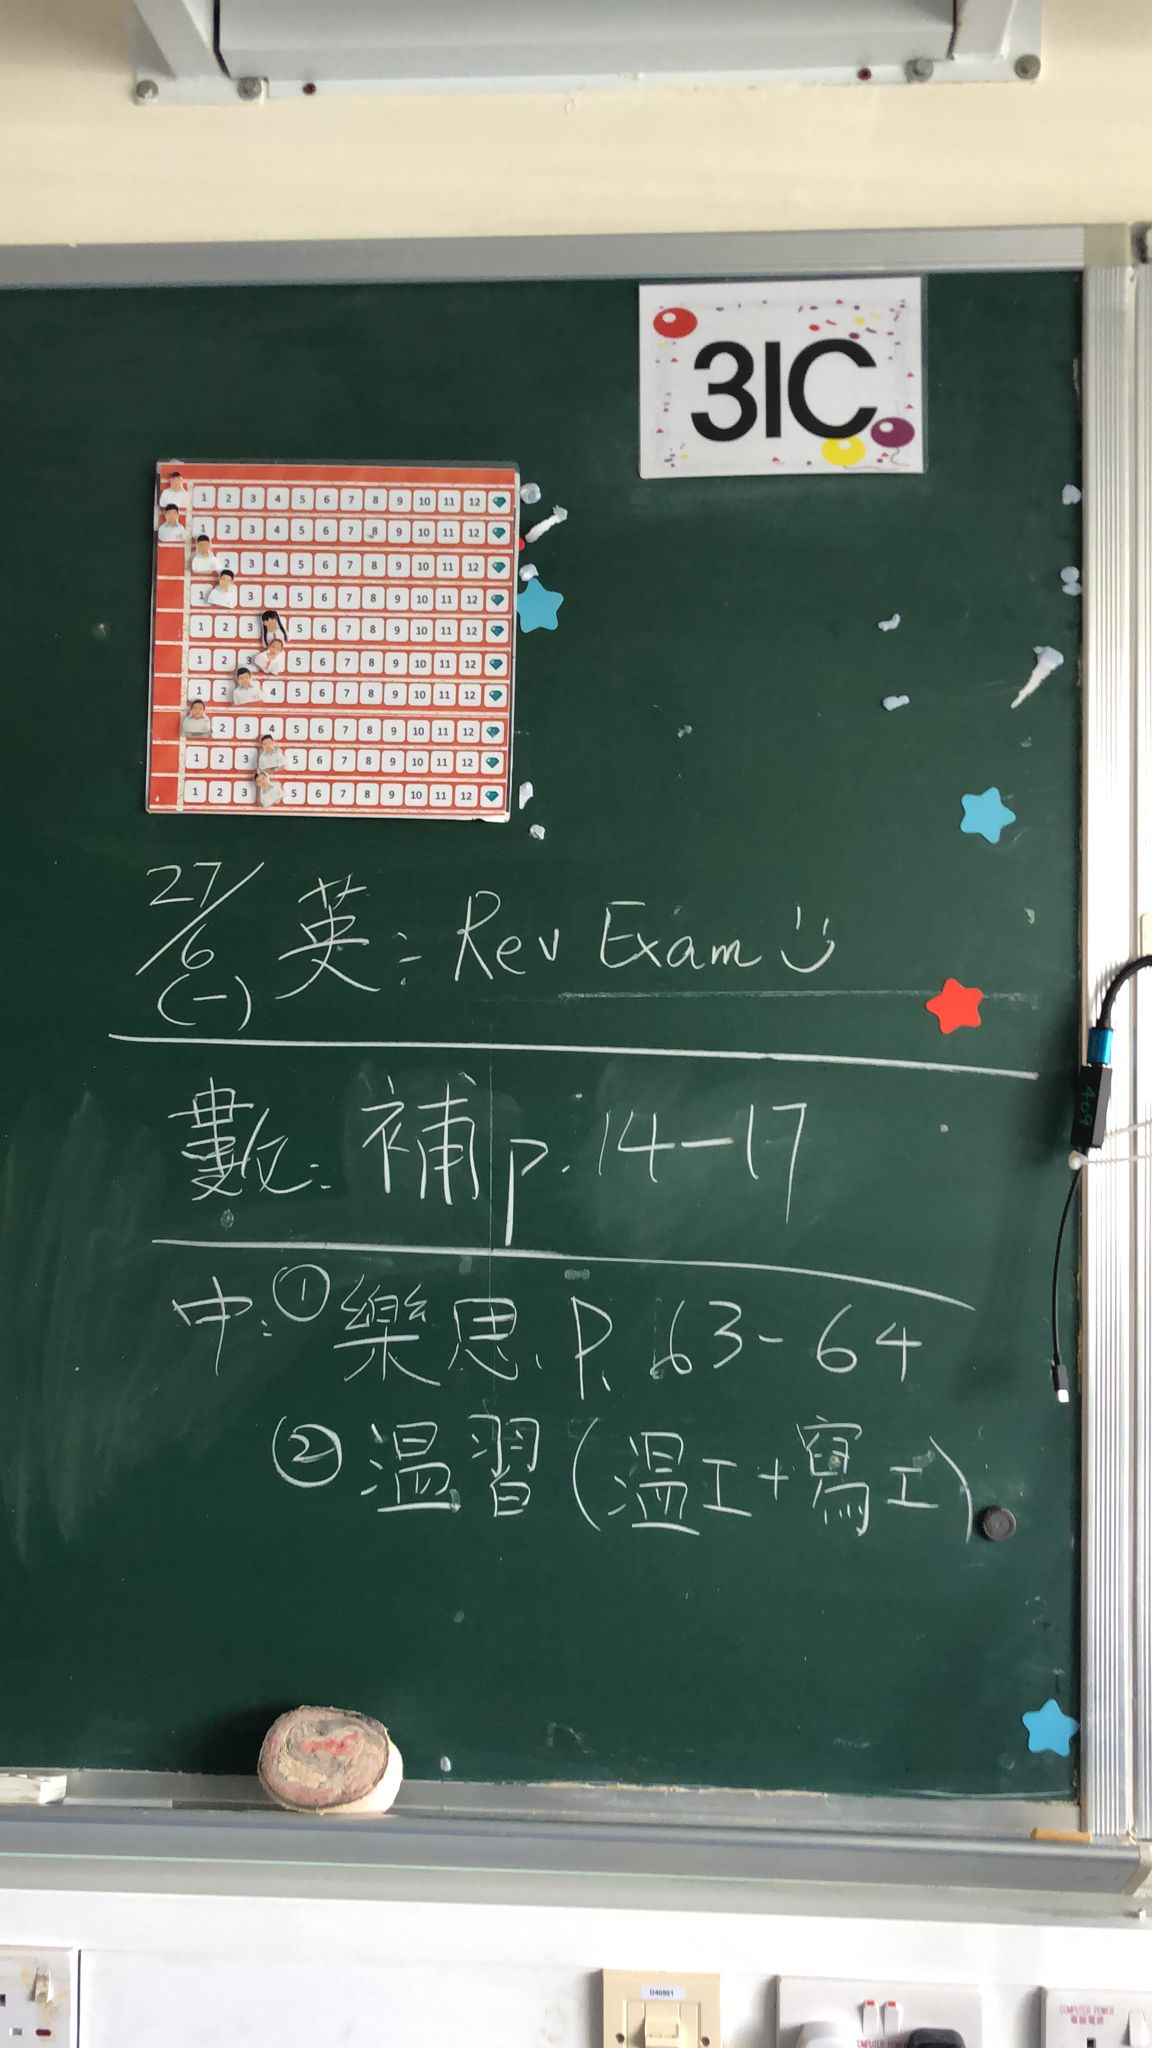 3IC
1 2 3 4 5 6 7 8 9 10 11 12
1 2 3 4 5 6 7 8 9 10 11 12
2 3 4 5 6 7 8 9 10 11 12
1 3 4 5 6 7 8 9 10 11 12
1 2 3 5 6 7 8 9 10 11 12
1 2 3 5 6 7 8 9 10 11 12
1 2 4 5 6 7 8 9 10 11 12
2 3 4 5 6 7 8 9 10 11 12
1 2 3 5 6 7 8 9 10 11 12
1 2 3 5 6 7 8 9 10 11 12
27/6 (一) 英: Rev Exam
409
數: 補 p. 14-17
中: ① 樂思 P. 63-64
② 溫習 (溫工+寫工)
D40901
COMPUTER POWER
COMPUTER POWER
電腦電源